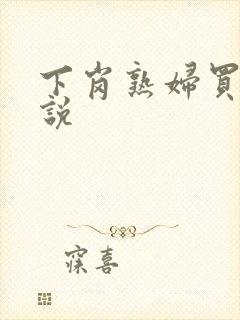 下岗熟婦買
説
寐喜